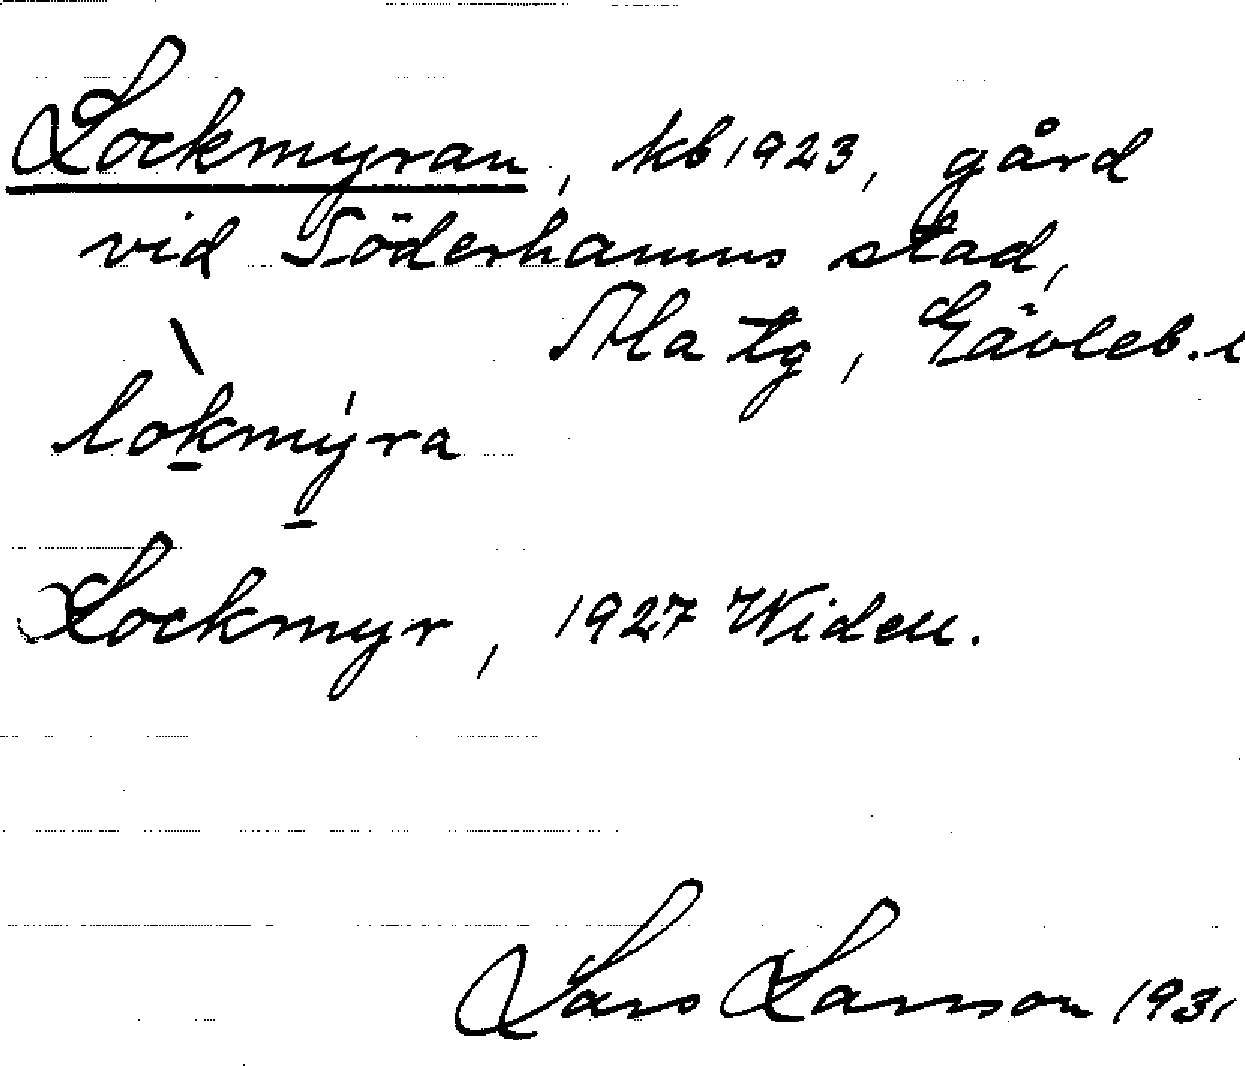 Lockmyran, kb 1923, gård
vid Söderhamns stad,
Ala tg, Gävleb. l
lokmyra
Lockmyr, 1927 Widell.
Lars Larsson 1931